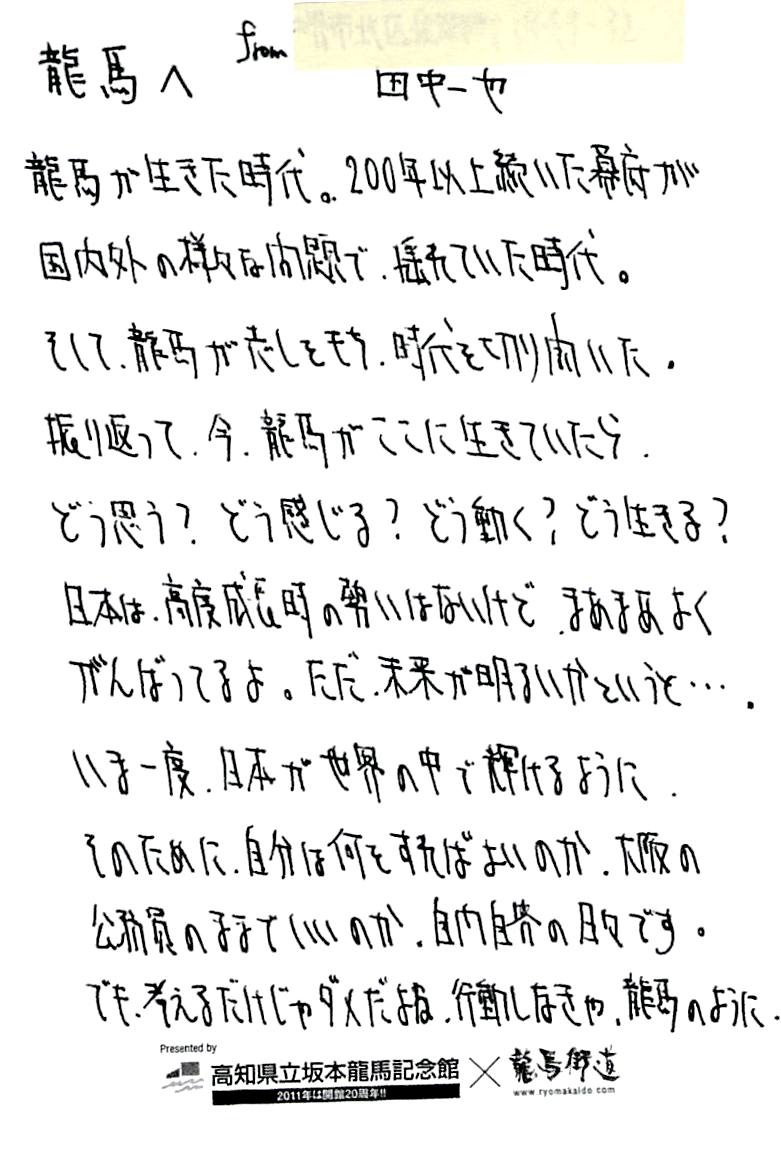 龍馬へ from 田中一也
龍馬が生きた時代。200年以上続いた幕府が
国内外の様々な問題で、揺れていた時代。
そして、龍馬が志しをもち、時代を切り開いた。
振り返って、今、龍馬がここに生きていたら、
どう思う？どう感じる？どう動く？どう生きる？
日本は、高度成長時の勢いはないけど、まあまあよく
がんばってるよ。ただ、未来が明るいかというと…。
いま一度、日本が世界の中で輝けるように、
そのために、自分は何をすればよいのか、大阪の
公務員のままでいいのか、自問自答の日々です。
でも、考えるだけじゃダメだよね、行動しなきゃ、龍馬のように、
Presented by
高知県立坂本龍馬記念館 × 龍馬街道
2011年は開館20周年!! www.ryomakaido.com